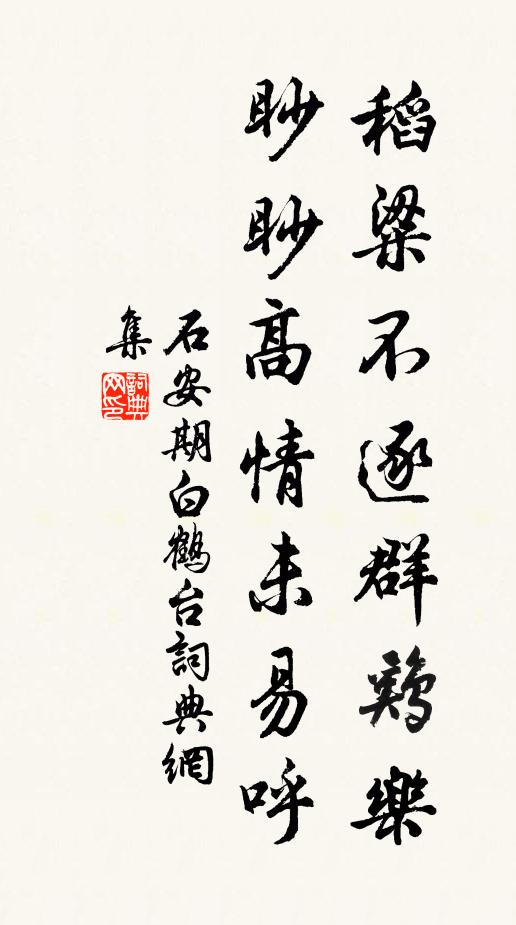 稻粱不逐群鷄樂
眇眇高情未易呼
石安期白鶴台詞典網
集
詞典
网印